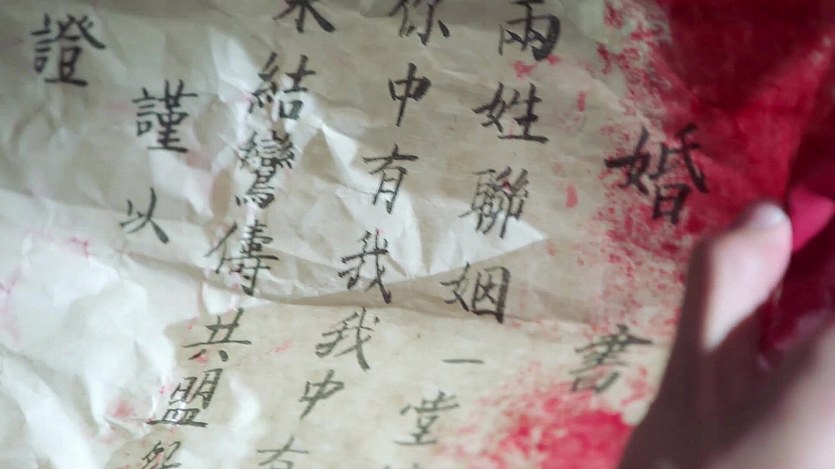 婚書
兩姓聯姻一堂
你中有我我中有
結鸞儔共盟
謹以
證